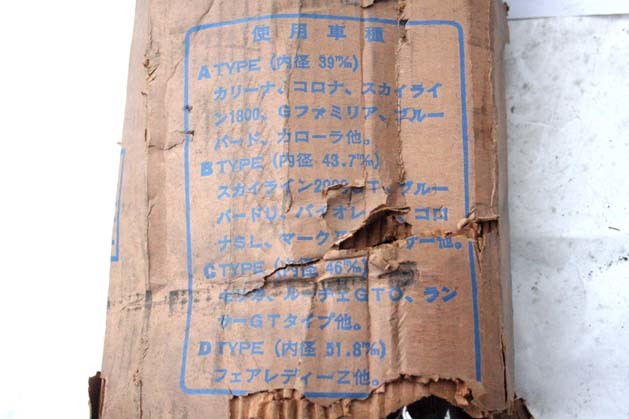 使用車種
A TYPE (内径 39㎜)
カリーナ、コロナ、スカイライ
ン1800、Gファミリア、ブルー
バード、カローラ他。
B TYPE (内径 43.7㎜)
スカイライン2000GT、ブルー
バードU、バイオレ コロ
ナSL、マーク 他。
C TYPE (内径 46㎜)
セリカ、ルーチェGTO、ラン
サーGTタイプ他。
D TYPE (内径 51.8㎜)
フェアレディーZ他。